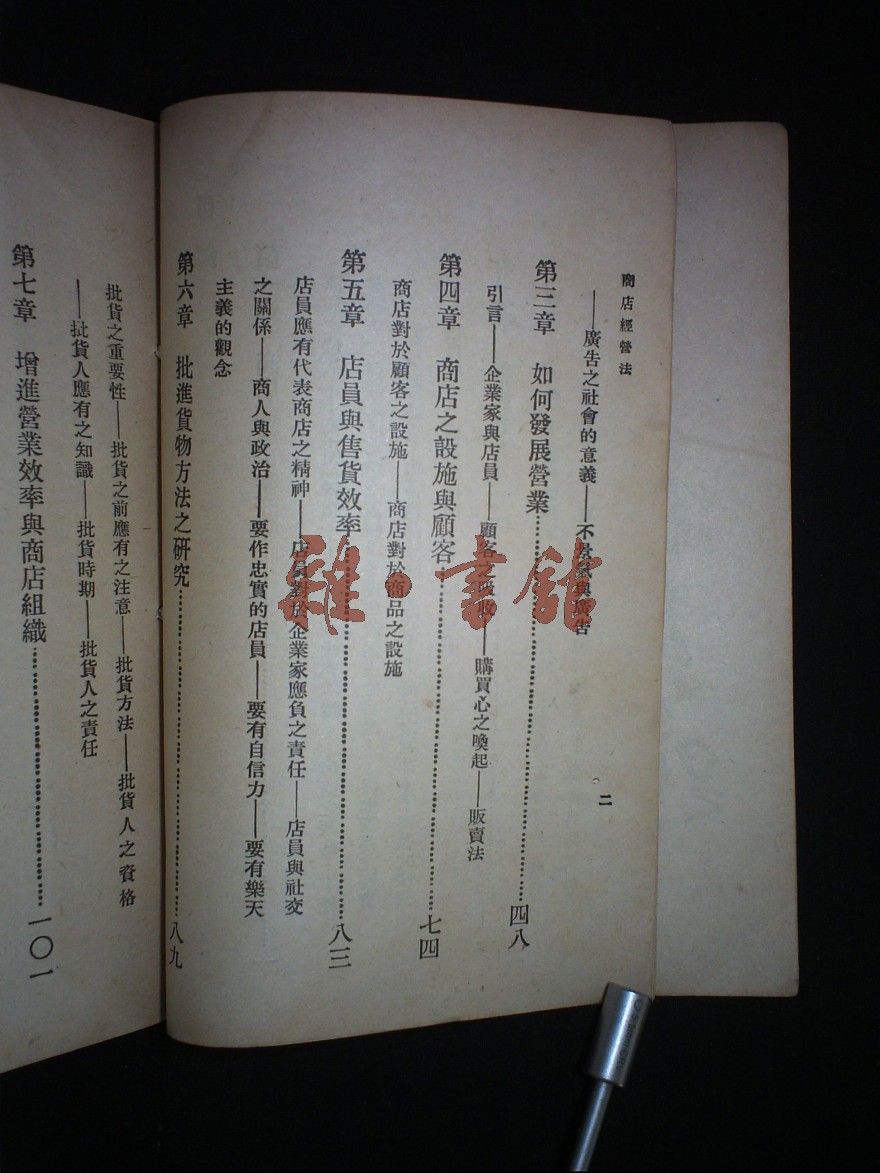 商店經營法
二
——廣告之社會的意義——不景氣與廣告
第三章　如何發展營業……………………………四八
引言——企業家與店員——顧客之吸收——購買心之喚起——販賣法
第四章　商店之設施與顧客……………………………七四
商店對於顧客之設施——商店對於商品之設施
第五章　店員與售貨效率……………………………八三
店員應有代表商店之精神——店員對於企業家應負之責任——店員與社交
之關係——商人與政治——要作忠實的店員——要有自信力——要有樂天
主義的觀念
第六章　批進貨物方法之研究……………………………八九
批貨之重要性——批貨之前應有之注意——批貨方法——批貨人之資格
——批貨人應有之知識——批貨時期——批貨人之責任
第七章　增進營業效率與商店組織……………………………一〇一
雜·書館